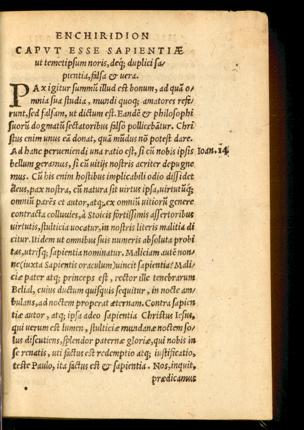 ENCHIRIDION
CAPVT ESSE SAPIENTIÆ
ut temetipsum noris, deq; duplici sa-
pientia, falsa & uera.
PAx igitur summũ illud est bonum, ad quã o-
mnia sua studia, mundi quoq; amatores refe-
runt, sed falsam, ut dictum est. Eandẽ & philosophi
suorũ dogmatũ sectatoribus falso pollicebãtur. Chri
stus enim unus eã donat, quã mũdus nõ potest dare.
Ad hanc perueniendi una ratio est, si cũ nobis ipsis
Ioan. 14.
bellum geramus, si cũ uitijs nostris acriter depugne
mus. Cũ his enim hostibus implicabili odio dissidet
deus, pax nostra, cũ natura sit uirtus ipsa, uirtutũq;
omniũ parẽs et autor, atq; ex omniũ uitiorũ genere
contracta colluuies, à Stoicis fortissimis assertoribus
uirtutis, stulticia uocatur, in nostris literis malitia di
citur. Itidem ut omnibus suis numeris absoluta probi
tas, utrisq; sapientia nominatur. Maliciam autẽ non-
ne (iuxta Sapientis oraculum) uincit sapientia? Mali
ciæ pater atq; princeps est, rector ille tenebrarum
Belial, cuius ductum quisquis sequitur, in nocte am-
bulans, ad noctem properat æternam. Contra sapien
tiæ autor, atq; ipsa adeo sapientia Christus Iesus,
qui uerum est lumen, stulticiæ mundanæ noctem so/
lus discutiens, splendor paternæ gloriæ, qui nobis in
se renatis, uti factus est redemptio atq; iustificatio,
teste Paulo, ita factus est & sapientia. Nos, inquit,
prædicamus